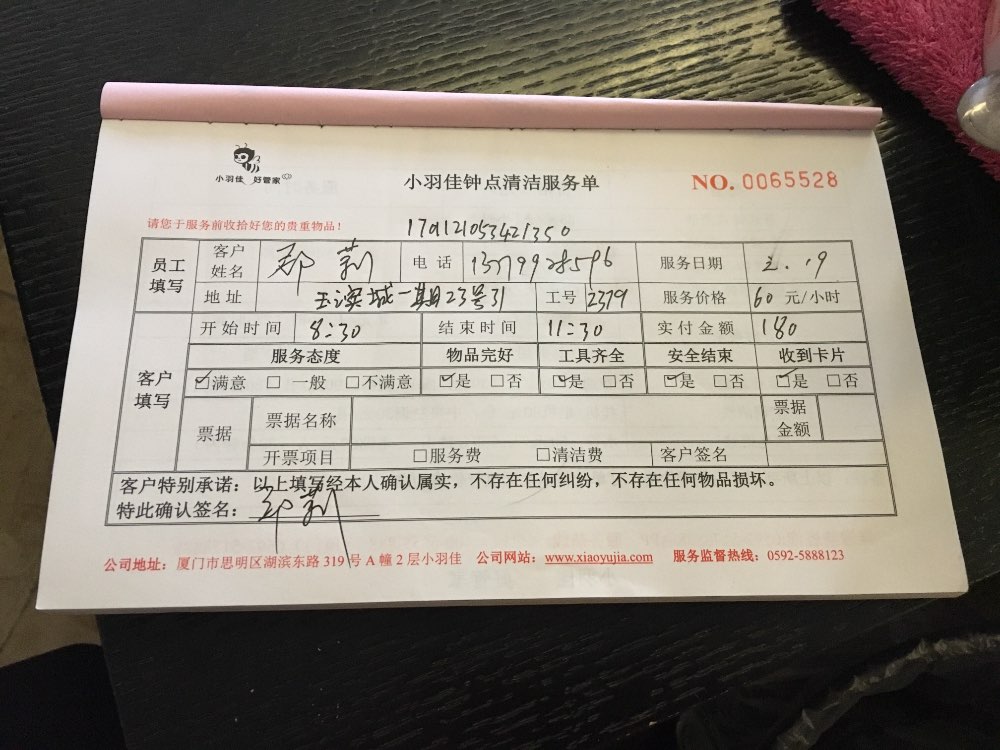 小羽佳 好管家
小羽佳钟点清洁服务单
NO. 0065528
请您于服务前收拾好您的贵重物品！
170121053421350
员工填写 客户姓名 郑莉 电话 服务日期
地址 号31 工号 2379 服务价格 60 元/小时
开始时间 8:30 结束时间 11:30 实付金额 180
客户填写 服务态度 物品完好 工具齐全 安全结束 收到卡片
☑满意 □一般 □不满意 ☑是 □否 ☑是 □否 ☑是 □否 ☑是 □否
票据 票据名称 票据金额
开票项目 □服务费 □清洁费 客户签名
客户特别承诺：以上填写经本人确认属实，不存在任何纠纷，不存在任何物品损坏。
特此确认签名：郑莉
公司地址：厦门市思明区湖滨东路 319 号 A 幢 2 层小羽佳 公司网站：www.xiaoyujia.com 服务监督热线：0592-5888123